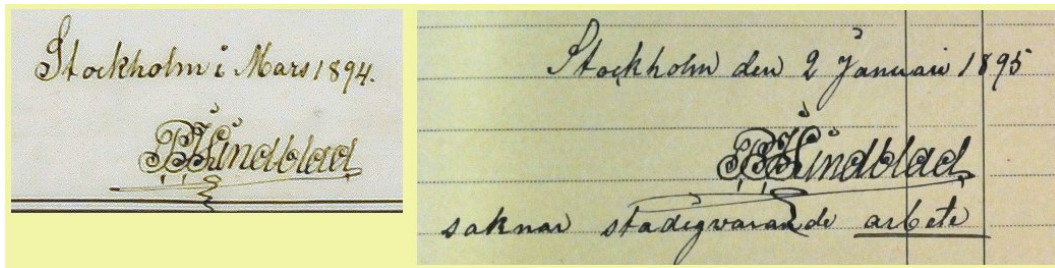 Stockholm i Mars 1894.
Lindblad
Stockholm den 2 Januari 1895
Lindblad
saknar stadigvarande arbete